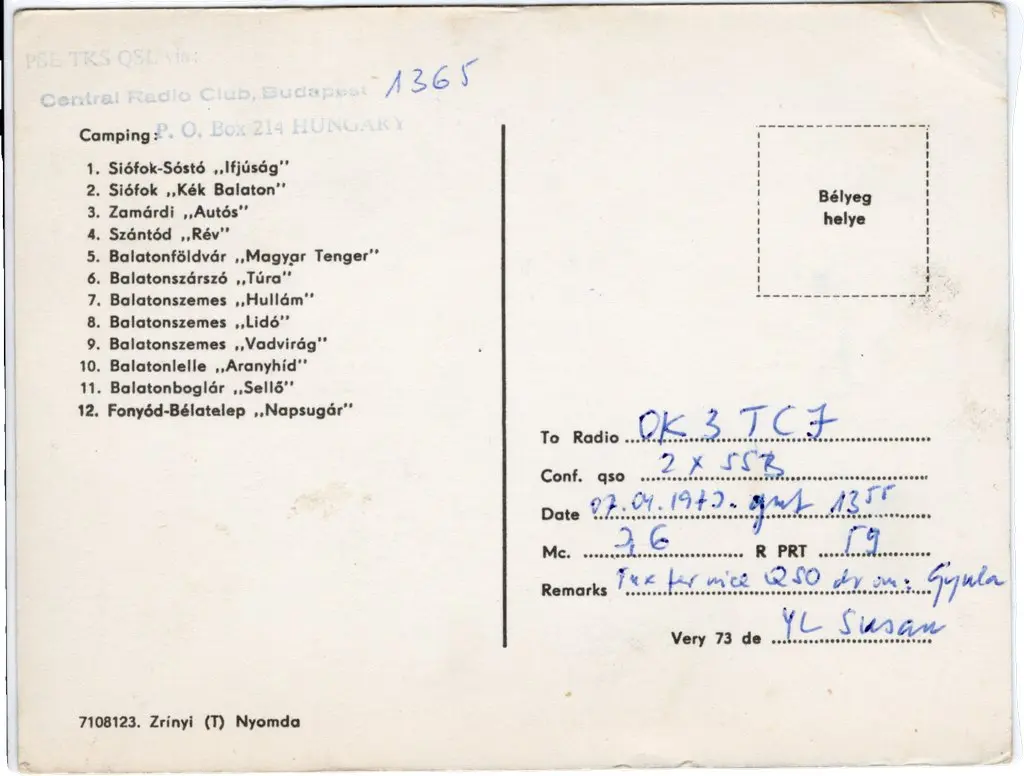 PSE TKS QSL via:
Central Radio Club, Budapest 1365
P. O. Box 214 HUNGARY
Camping:
1. Siófok-Sóstó „Ifjúság"
2. Siófok „Kék Balaton"
3. Zamárdi „Autós"
4. Szántód „Rév"
5. Balatonföldvár „Magyar Tenger"
6. Balatonszárszó „Túra"
7. Balatonszemes „Hullám"
8. Balatonszemes „Lidó"
9. Balatonszemes „Vadvirág"
10. Balatonlelle „Aranyhíd"
11. Balatonboglár „Sellő"
12. Fonyód-Bélatelep „Napsugár"
7108123. Zrínyi (T) Nyomda
Bélyeg
helye
To Radio OK 3 TCJ
Conf. qso 2 x SSB
Date gmt 13 55
Mc. 3,6 R PRT 59
Remarks Tnx fer nice QSO dr om: Gyula
Very 73 de YL Susan